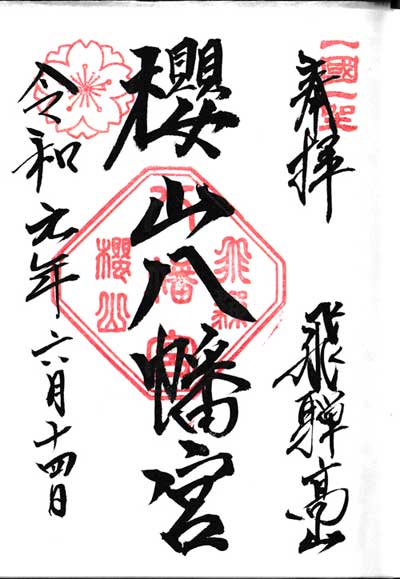 奉拝
飛騨高山
櫻山八幡宮
令和元年六月十四日
一國一社
八幡宮
飛騨
櫻山